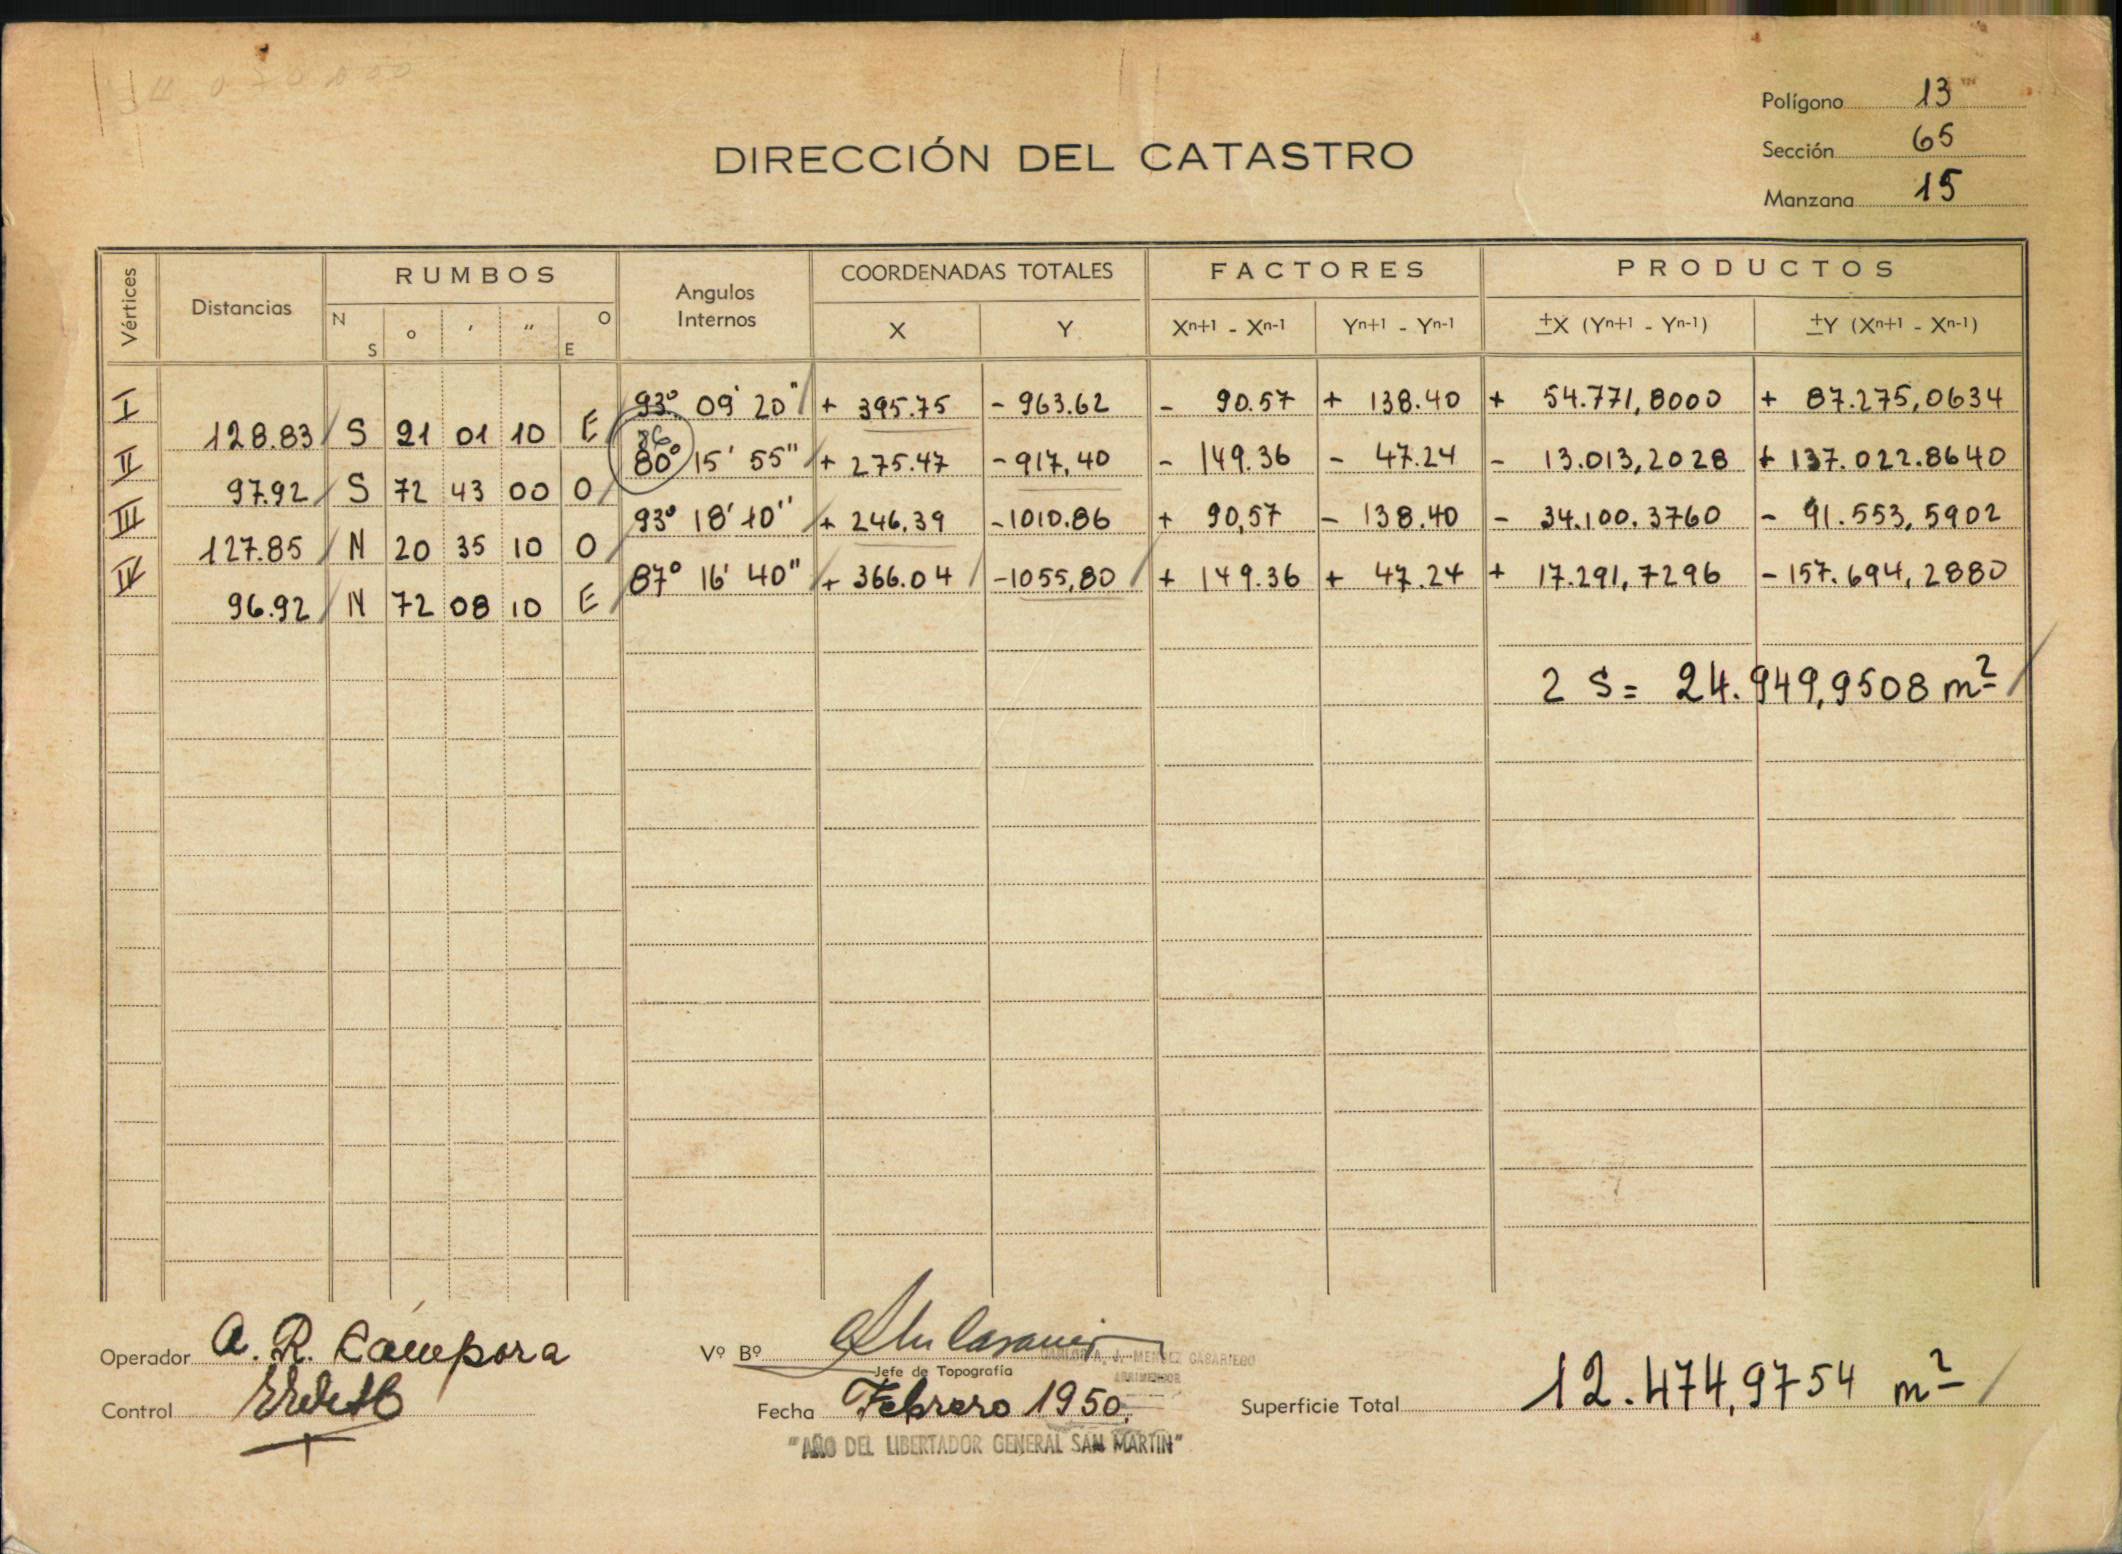 Polígono 13
Sección 65
Manzana 15
DIRECCIÓN DEL CATASTRO
Vértices Distancias RUMBOS Angulos Internos COORDENADAS TOTALES FACTORES PRODUCTOS
N S ° ′ ″ O E X Y Xn+1 - Xn-1 Yn+1 - Yn-1 ±X (Yn+1 - Yn-1) ±Y (Xn+1 - Xn-1)
I 93° 09' 20" + 395.75 - 963.62 - 90.57 + 138.40 + 54.771,8000 + 87.275,0634
128.83 S 21 01 10 E
86
II 80° 15' 55" + 275.47 - 917,40 - 149.36 - 47.24 - 13.013,2028 + 137.022.8640
97.92 S 72 43 00 O
III 93° 18' 10" + 246,39 - 1010.86 + 90,57 - 138.40 - 34.100.3760 - 91.553,5902
127.85 N 20 35 10 O
IV 87° 16' 40" + 366.04 - 1055,80 + 149.36 + 47.24 + 17.291,7296 - 157.694,2880
96.92 N 72 08 10 E
2 S = 24.949,9508 m²
Operador A. R. Cámpora
Vº Bº
Jefe de Topografía
Control
Fecha Febrero 1950.
Superficie Total 12.474,9754 m²
"AÑO DEL LIBERTADOR GENERAL SAN MARTIN"